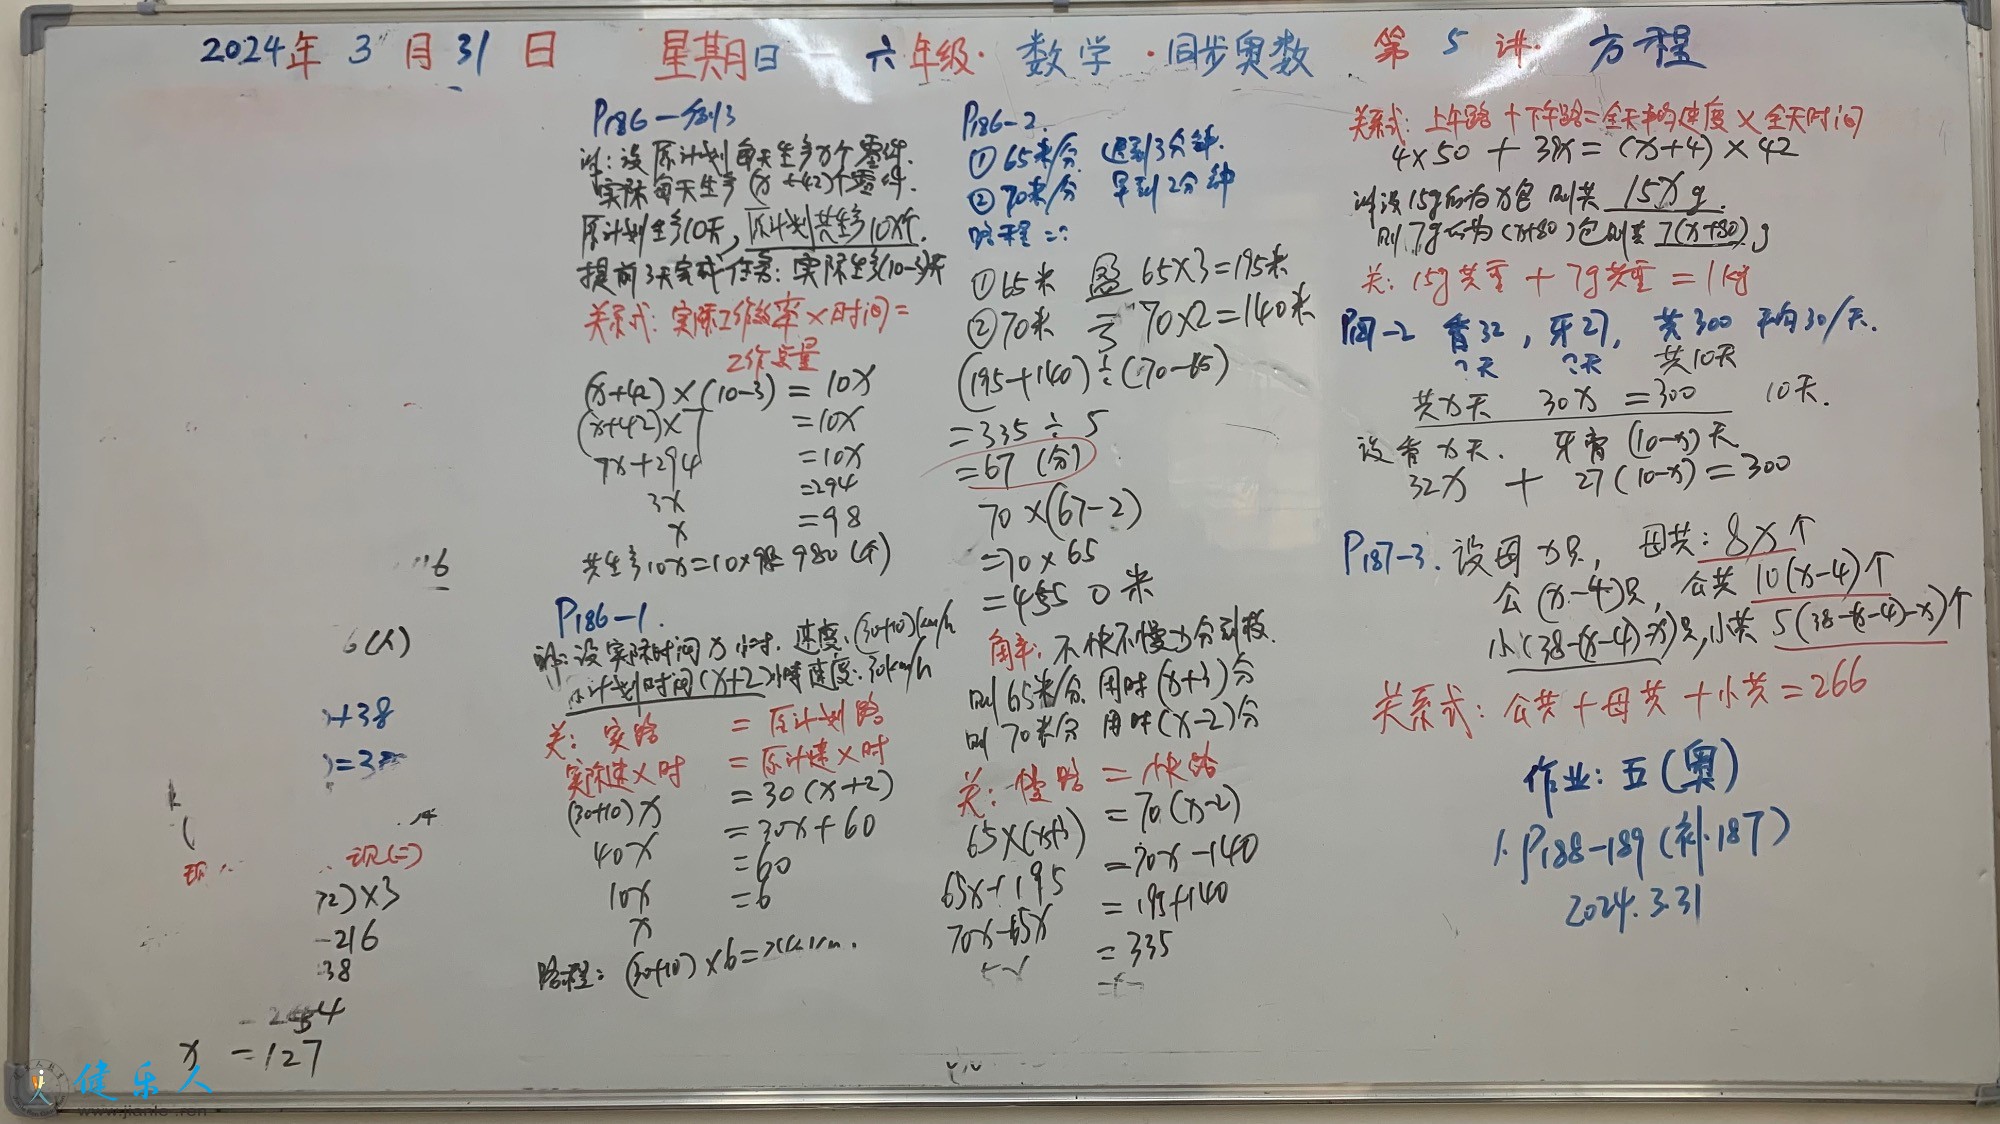 2024年 3 月 31 日 星期日 — 六年级·数学·同步奥数 第 5 讲· 方程
"6
6(人)
)+38
)=38
72)×3
-216
38
54
x =127
P186—例3
解:设原计划每天生产x个零件.
实际每天生产(x+42)个零件.
原计划生产10天,原计划共生产10x个.
提前3天完成任务:实际生产(10-3)天
关系式:实际工作效率×时间=
工作总量
(x+42)×(10-3) = 10x
(x+42)×7 =10x
7x+294 =10x
3x =294
x =98
共生产10x=10×98= 980(个)
P186-1.
解:设实际时间x小时. 速度:(30+10)km/h
原计划时间(x+2)小时 速度:30km/h
关: 实路 = 原计划路
实际速×时 = 原计速×时
(30+10)x =30(x+2)
40x =30x+60
10x =60
x =6
路程: (30+10)×6=
P186-2.
①65米/分 迟到3分钟.
②70米/分 早到2分钟
路程=?
①65米 盈 65×3=195米
②70米 亏 70×2=140米
(195+140)÷(70-65)
=335÷5
=67(分)
70×(67-2)
=70×65
=4550米
解:不快不慢x分到校.
则65米/分 用时(x+3)分
则70米/分 用时(x-2)分
关: 慢路 = 快路
65×(x+3) =70(x-2)
65x+195 =70x-140
70x-65x =195+140
=335
关系式:上午路+下午路=全天平均速度×全天时间
4×50 + 38x=(x+4)×42
解设15g的为x包 则共 15x g.
则7g的为(x+80)包则共 7(x+80)g
关:15g共重 + 7g共重 =1kg
P187-2 香32,牙27, 共300 平均30/天.
?天 ?天 共10天
共x天 30x =300 10天.
设香x天. 牙膏(10-x)天
32x + 27(10-x)=300
P187-3. 设母x只, 母共:8x个
公(x-4)只, 公共10(x-4)个
小(38-(x-4)-x)只,小共5(38-(x-4)-x)个
关系式:公共+母共+小共=266
作业:五(奥)
1.P188-189(补.187)
2024.3.31
健乐人